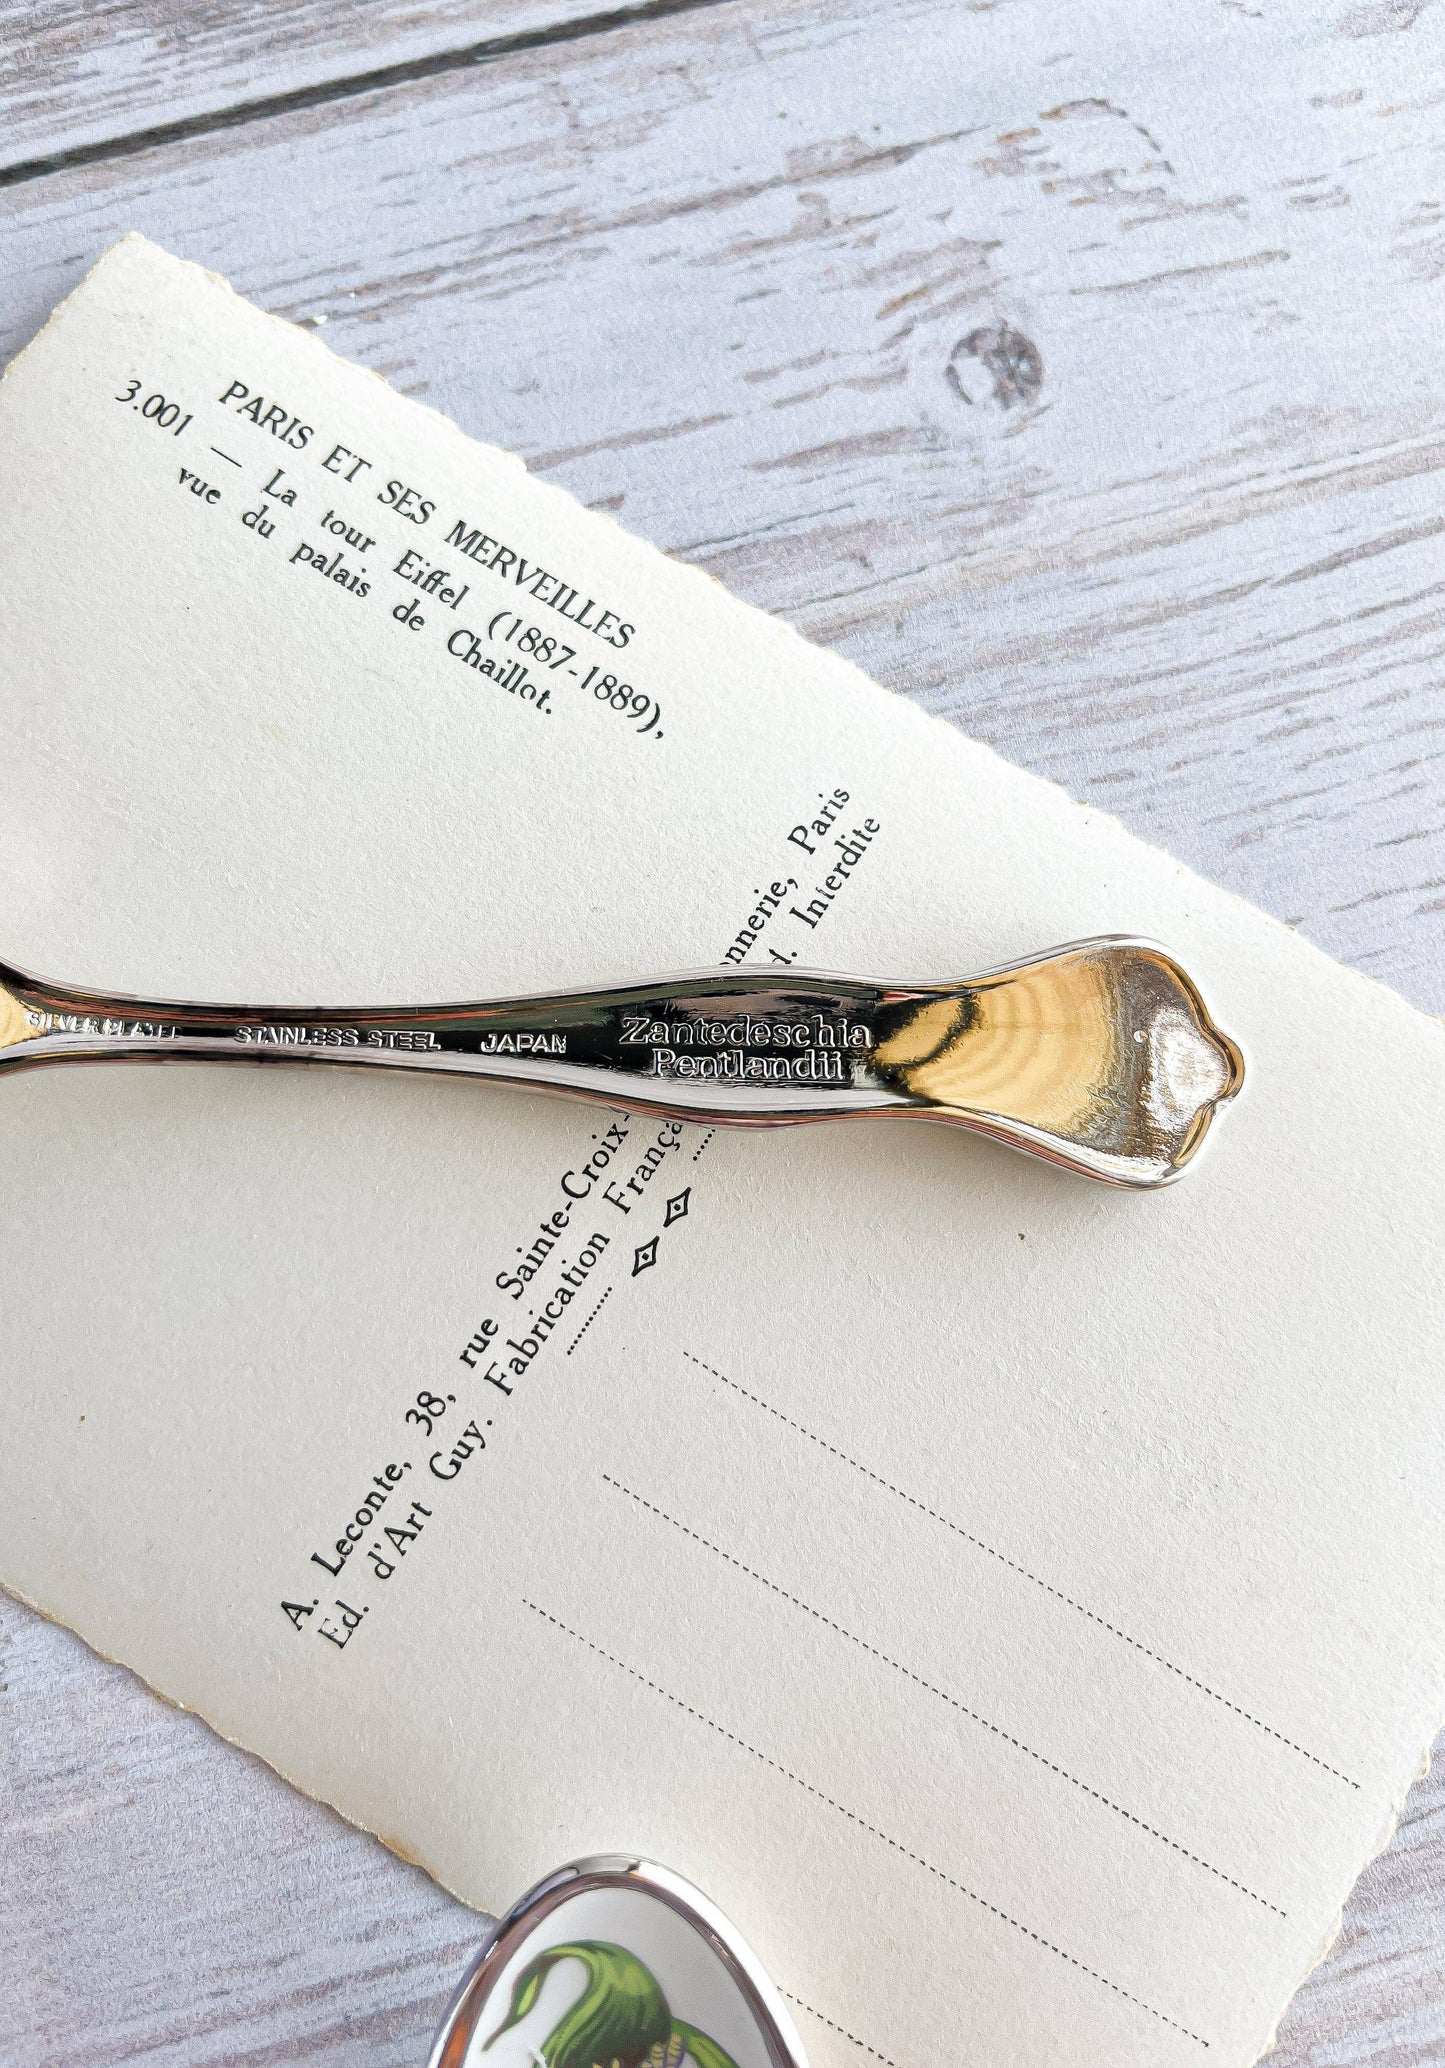 PARIS ET SES MERVEILLES
3.001 — La tour Eiffel (1887-1889),
vue du palais de Chaillot.
SILVER PLATED STAINLESS STEEL JAPAN
Zantedeschia
Pentlandii
A. Leconte, 38, rue Sainte-Croix- onnerie, Paris
Ed. d'Art Guy. Fabrication França d. Interdite